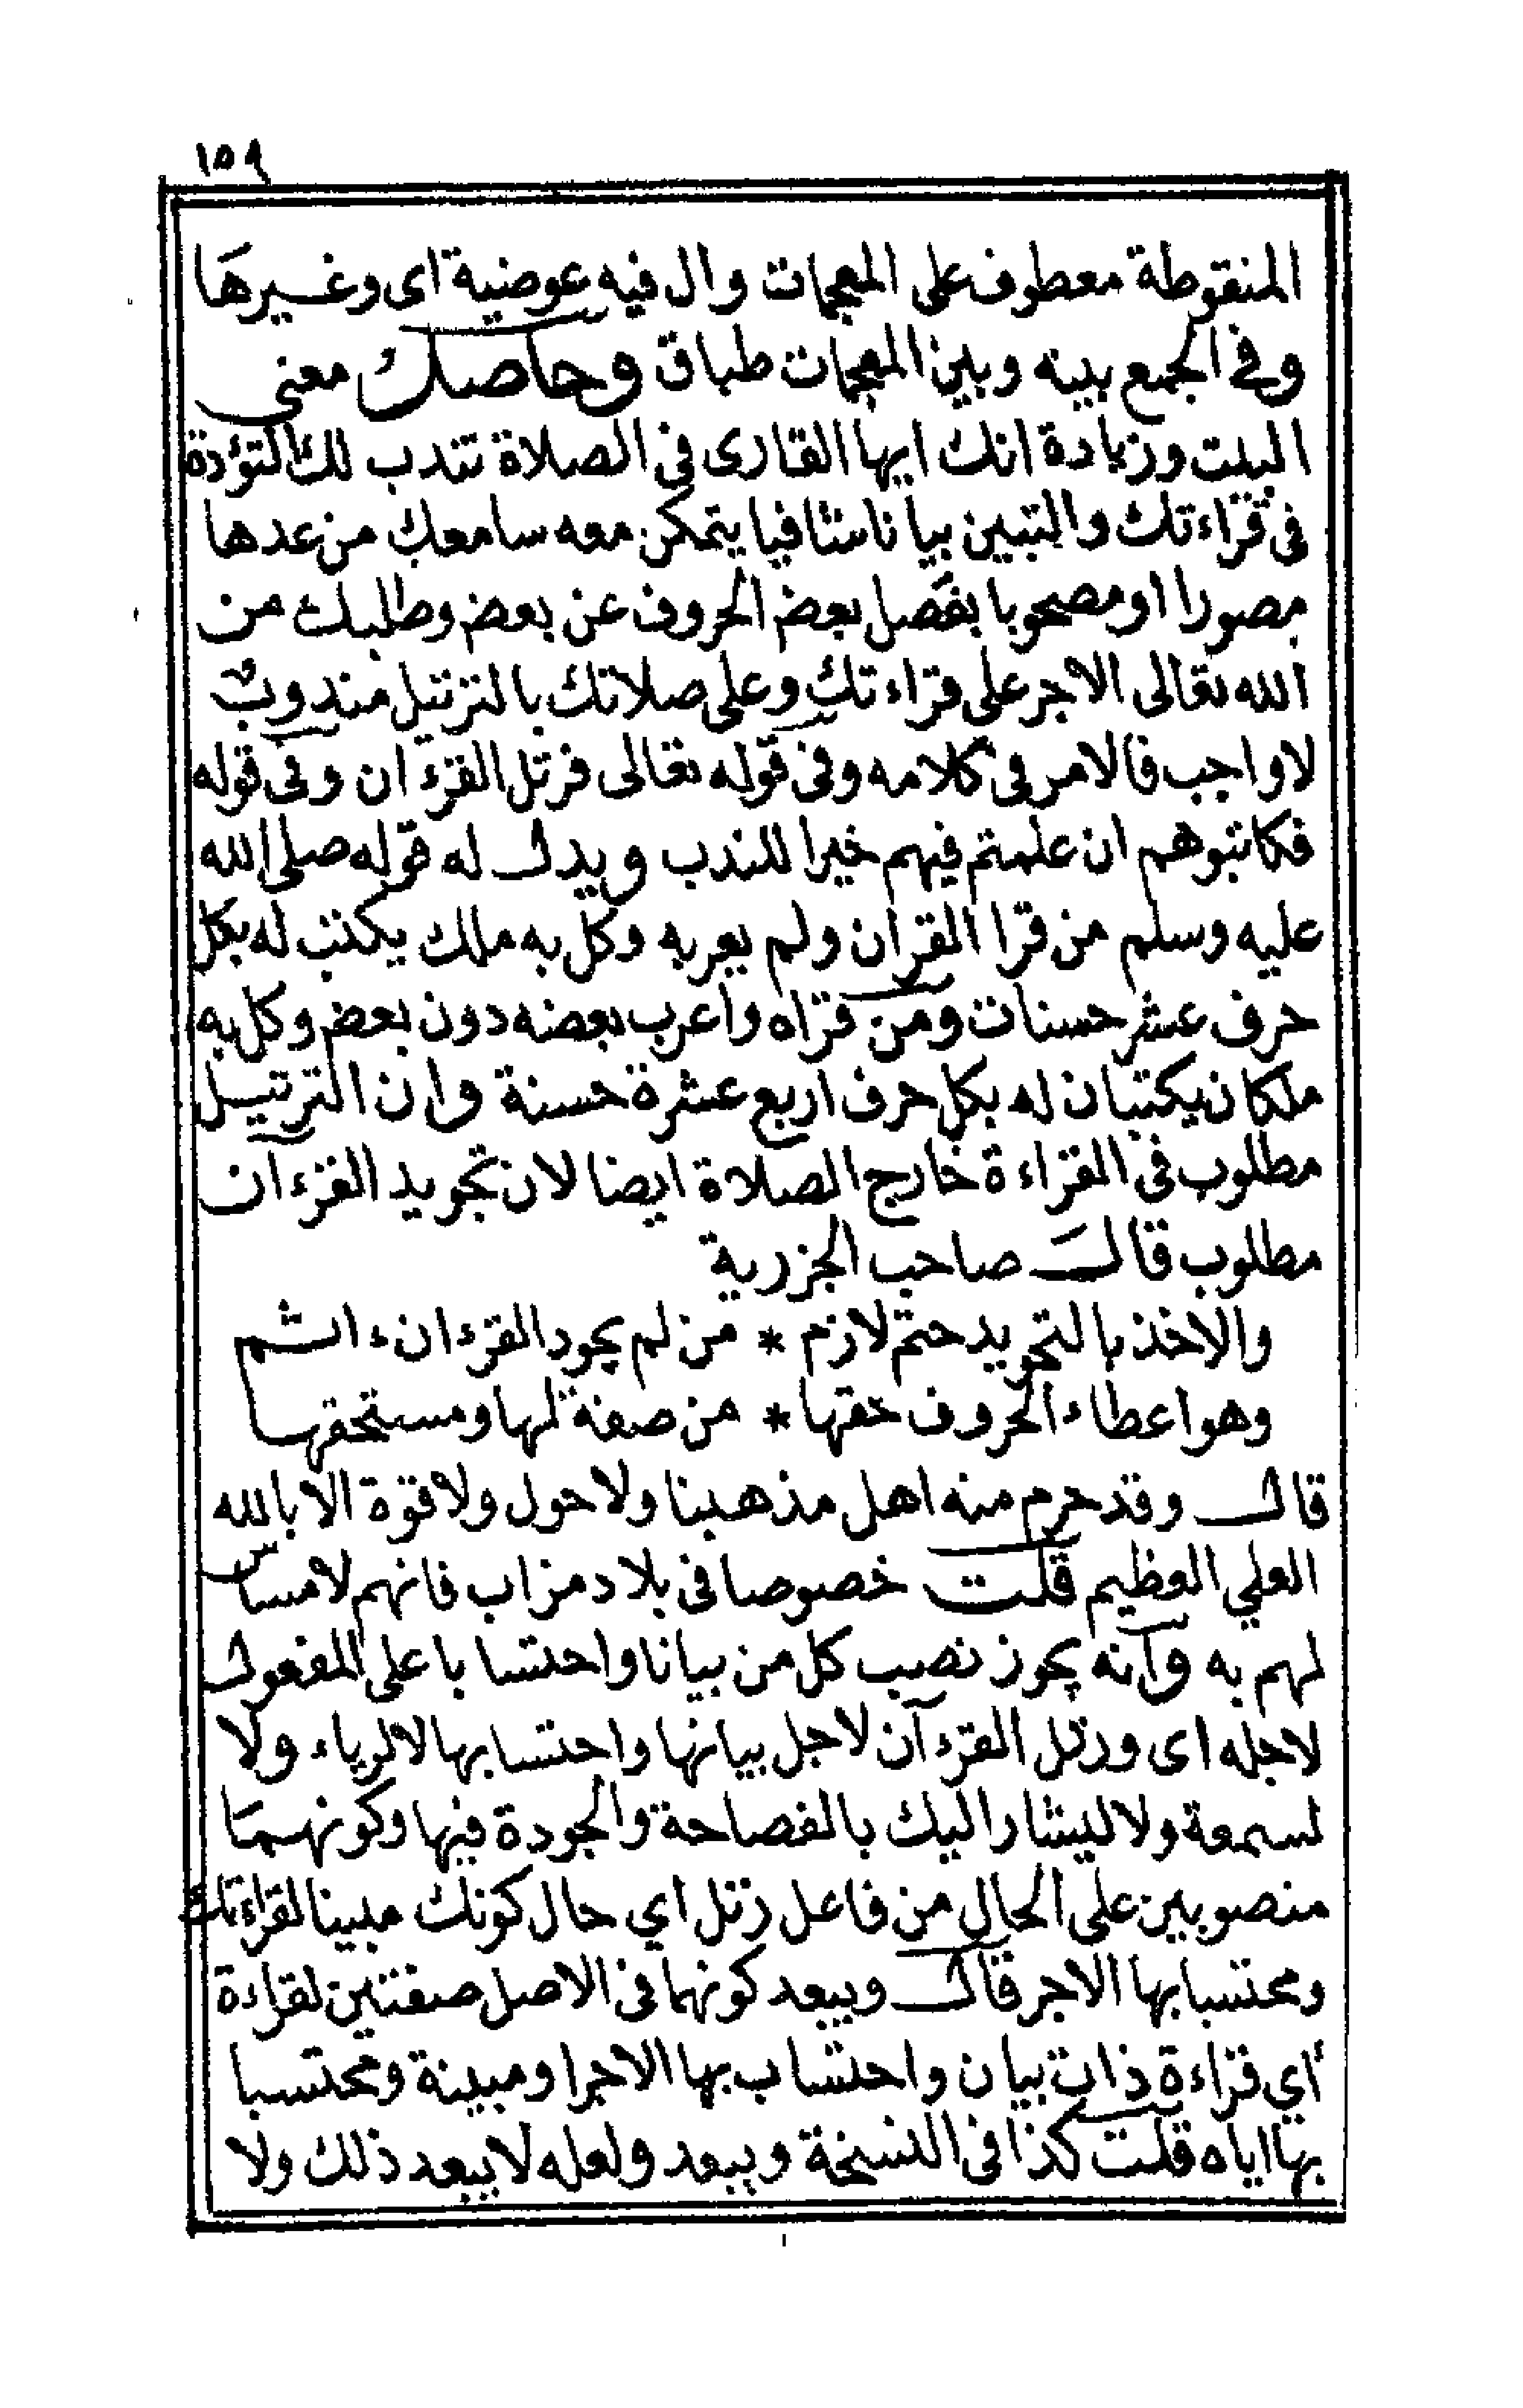 ١٥٩
المنقوطة معطوف على المعجمات وال فيه عوضية اى وغيرها
وفي الجمع بينه وبين المعجمات طباق وحاصل معنى
البيت وزيادة انك ايها القارى فى الصلاة تندب لك التؤدة
فى قراءتك والتبين بيانا شافيا يتمكن معه سامعك من عدها
مصورا او مصحوبا بفصل بعض الحروف عن بعض وطلبك من
الله تعالى الاجر على قراءتك وعلى صلاتك بالترتيل مندوب
لا واجب فالامر فى كلامه وفى قوله تعالى فرتل القرءان وفى قوله
فكاتبوهم ان علمتم فيهم خيرا للندب ويدل له قوله صلى الله
عليه وسلم من قرا القرآن ولم يعربه وكل به ملك يكتب له بكل
حرف عشر حسنات ومن قراه واعرب بعضه دون بعض وكل به
ملكان يكتبان له بكل حرف اربع عشرة حسنة وان الترتيل
مطلوب فى القراءة خارج الصلاة ايضا لان تجويد القرءان
مطلوب قال صاحب الجزرية
والاخذ بالتجويد حتم لازم * من لم يجود القرءان ءاثم
وهو اعطاء الحروف حقها * من صفة لها ومستحقها
قال وقد حرم منه اهل مذهبنا ولا حول ولا قوة الا بالله
العلي العظيم قلت خصوصا فى بلاد مزاب فانهم لا مساس
لهم به وانه يجوز نصب كل من بيانا واحتسابا على المفعول
لاجله اى ورتل القرءان لاجل بيانها واحتسابها لا لرياء ولا
لسمعة ولا ليشار اليك بالفصاحة والجودة فيها وكونهما
منصوبين على الحال من فاعل رتل اي حال كونك مبينا لقراءتك
ومحتسبا بها الاجر قال ويبعد كونهما فى الاصل صفتين لقراءة
أي قراءة ذات بيان واحتساب بها الاجر او مبينة ومحتسبا
بها اياه قلت كذا فى النسخة ويبعد ولعله لا يبعد ذلك ولا